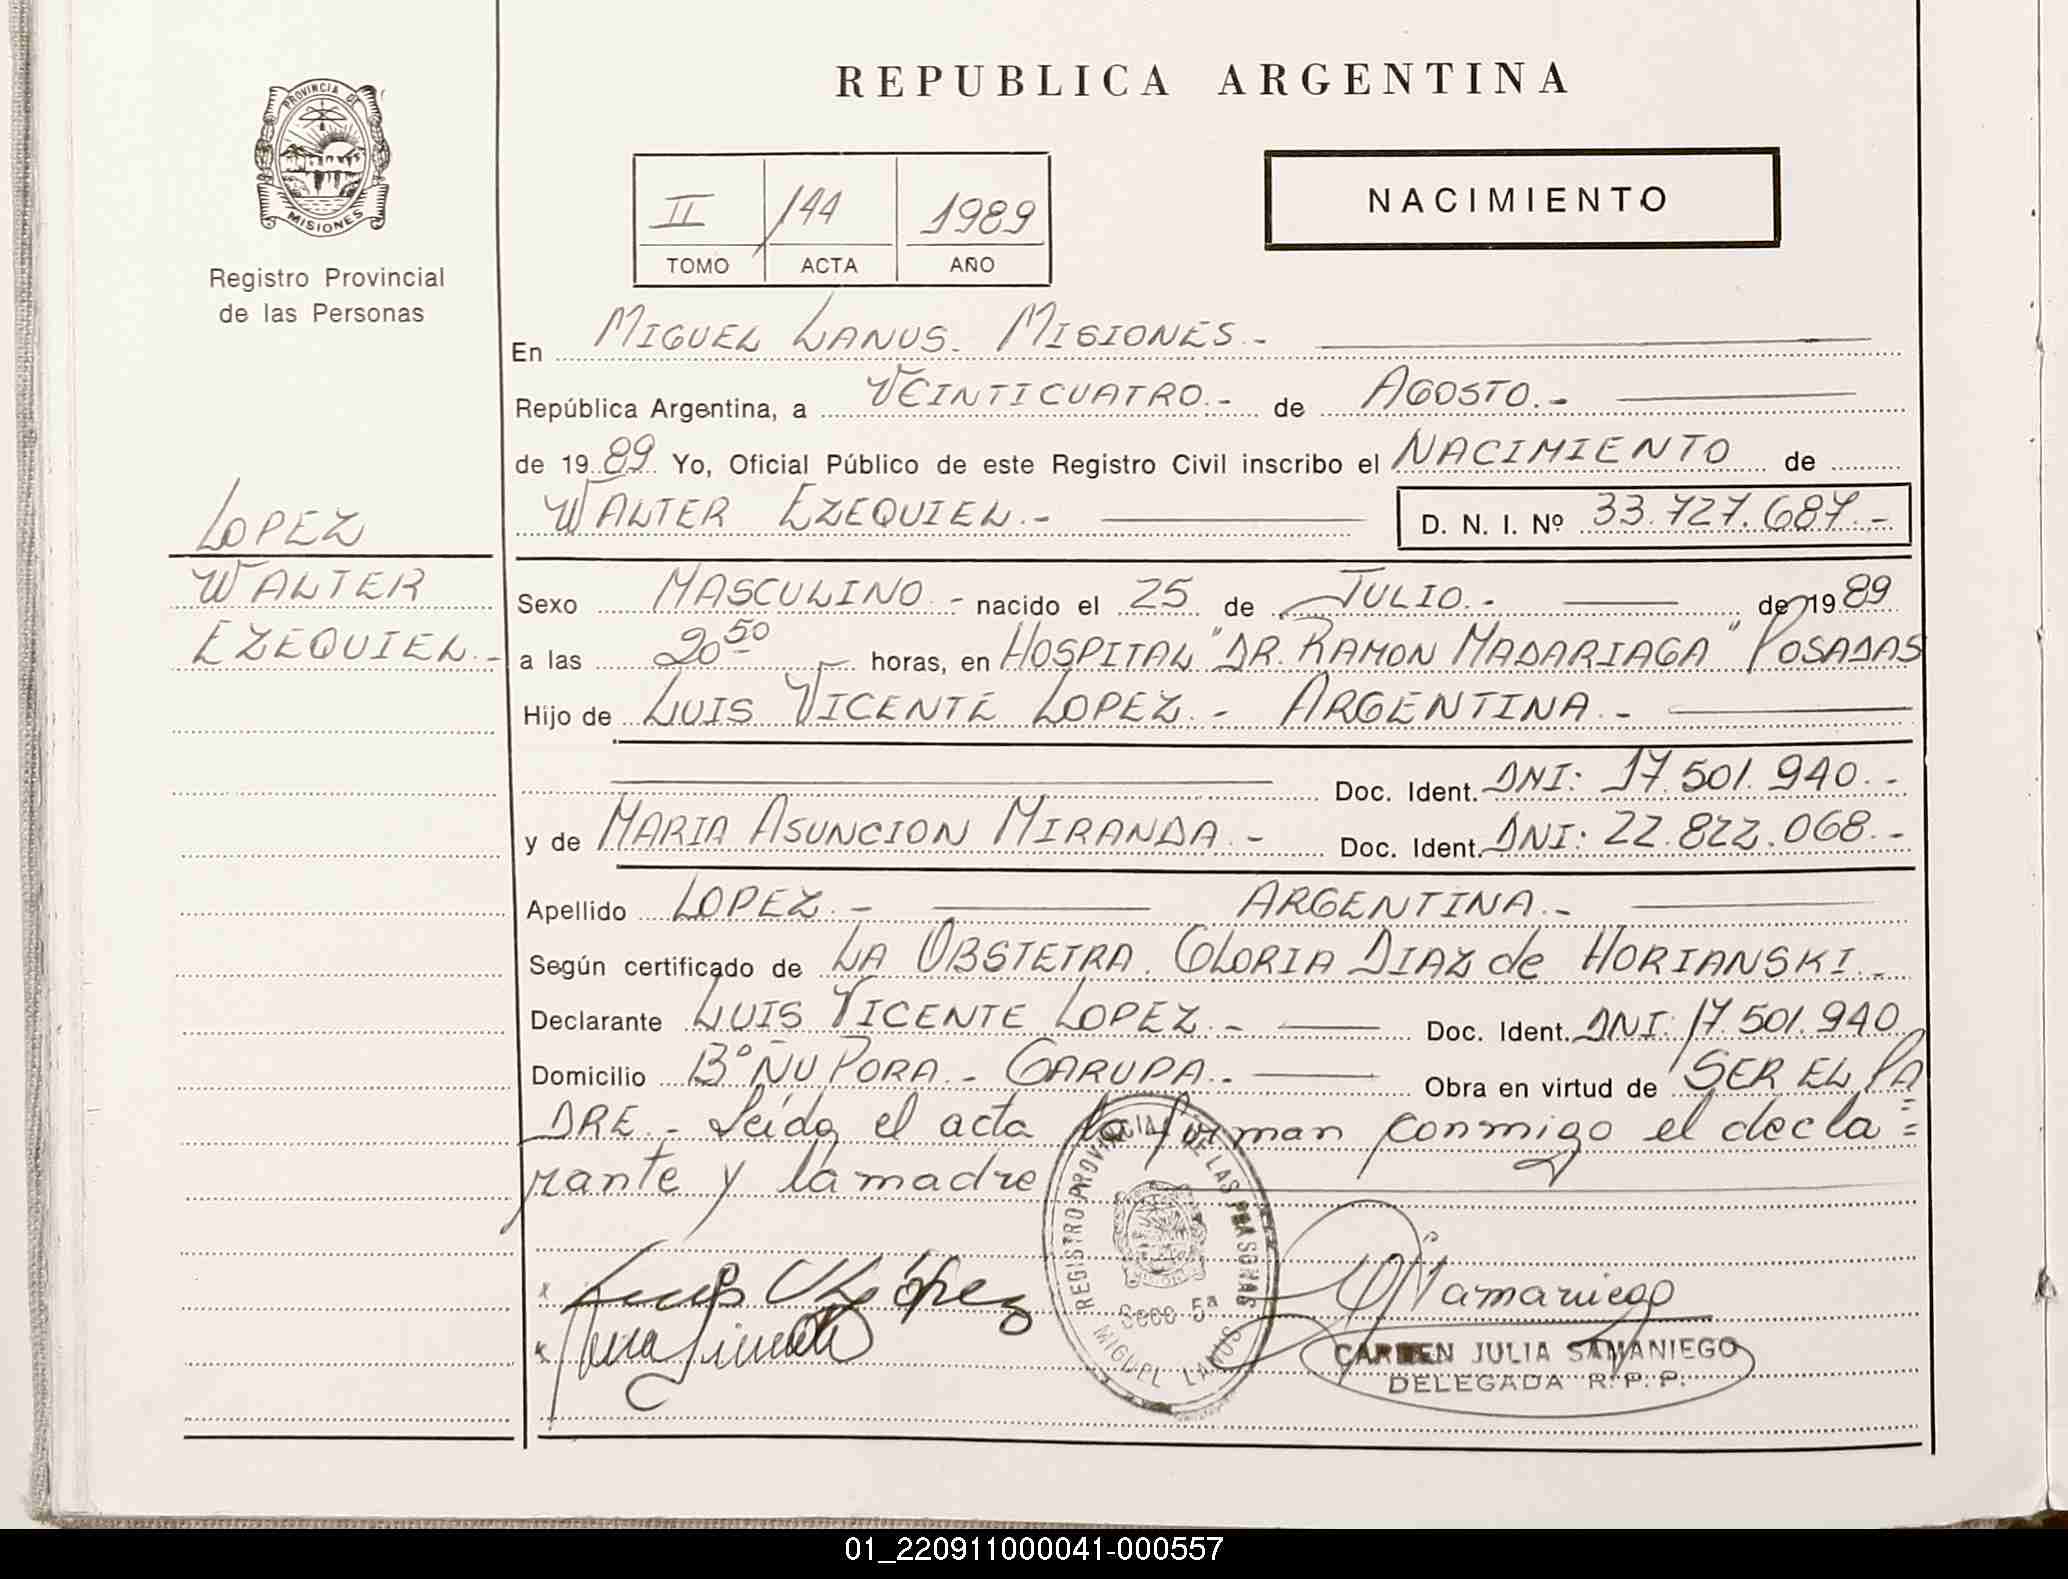 REPUBLICA ARGENTINA
PROVINCIA DE
MISIONES
Registro Provincial
de las Personas
II 144 1989
TOMO ACTA AÑO
NACIMIENTO
En MIGUEL LANUS. MISIONES.-
República Argentina, a VEINTICUATRO.- de AGOSTO.-
de 1989 Yo, Oficial Público de este Registro Civil inscribo el NACIMIENTO de
WALTER EZEQUIEL.- D. N. I. Nº 33.727.687.-
LOPEZ
WALTER
EZEQUIEL.-
Sexo MASCULINO.- nacido el 25 de JULIO.- de 1989
a las 20 50 horas, en HOSPITAL "DR. RAMON MADARIAGA" POSADAS
Hijo de LUIS VICENTE LOPEZ.- ARGENTINA.-
Doc. Ident. DNI: 17.501.940.-
y de MARIA ASUNCION MIRANDA.- Doc. Ident. DNI: 22.822.068.-
Apellido LOPEZ.- ARGENTINA.-
Según certificado de LA OBSTETRA. GLORIA DIAZ de HORIANSKI.-
Declarante LUIS VICENTE LOPEZ.- Doc. Ident. DNI: 17.501.940
Domicilio Bº ÑU PORA.- GARUPA.- Obra en virtud de SER EL PA
DRE.- Leída el acta la firman conmigo el decla=
rante y la madre
REGISTRO PROVINCIAL DE LAS PERSONAS
Secc 5ª
MIGUEL LANUS
Luis V López
CJSamaniego
CARMEN JULIA SAMANIEGO
DELEGADA R.P.P.
01_220911000041-000557